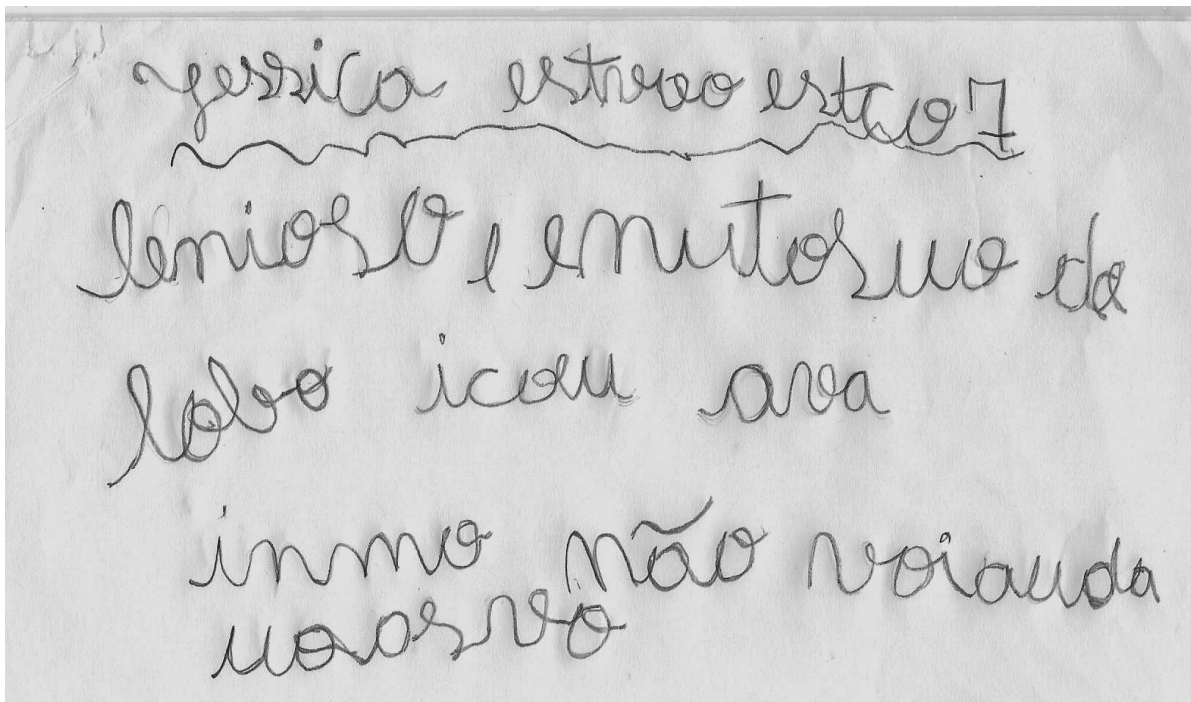 yessica estrao estço 1
leniosv, enutosuo da
lobo icou ava
inmo não voiauda
uoosvo